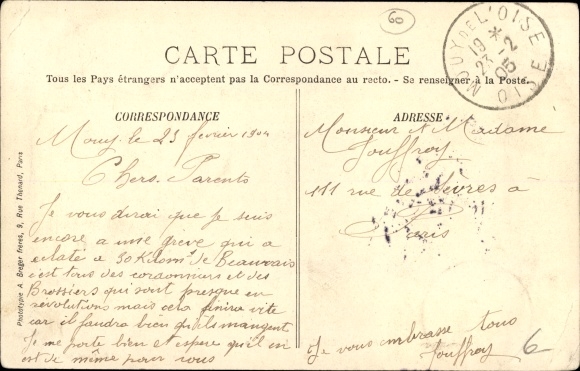 60
CARTE POSTALE
Tous les Pays étrangers n'acceptent pas la Correspondance au recto. - Se renseigner à la Poste.
MOUY DE L'OISE
19 *
23 -2
05
OISE
CORRESPONDANCE
Mouy le 23 février 1904
Chers Parents
Je vous dirai que je suis
encore a une grève qui a
eclaté a 30 Kilomt de Beauvais
c'est tous des cordonniers et des
Brossiers qui sont presque en
révolutions mais cela finira vite
car il faudra bien qu'ils mangent
Je me porte bien et espere qu'il en
est de même pour vous
ADRESSE
Monsieur & Madame
Jouffroy
111 rue de Sèvres à
Paris
Je vous embrasse tous
Jouffroy
6
Phototypie A. Breger frères, 9, Rue Thénard, Paris